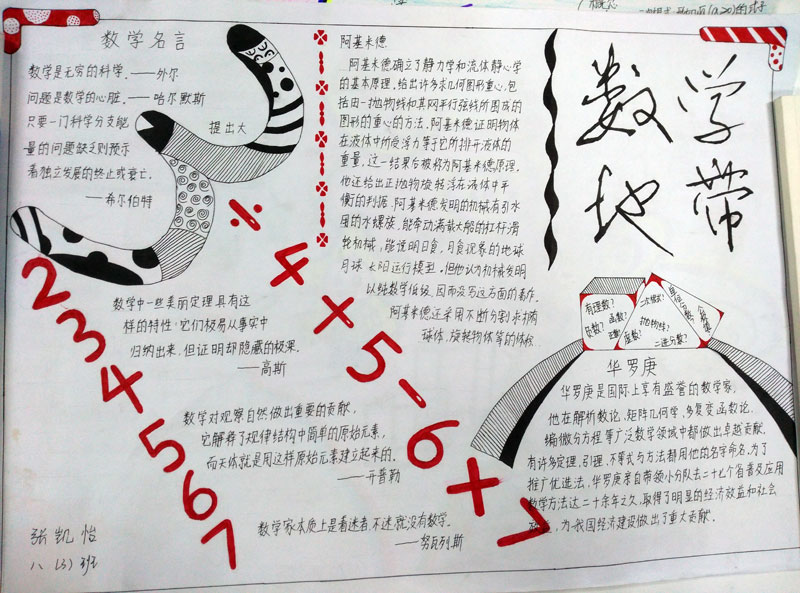 数学地带
数学名言
数学是无穷的科学。——外尔
问题是数学的心脏。——哈尔默斯
只要一门科学分支能
提出大
量的问题缺乏则预示
着独立发展的终止或衰亡。
——希尔伯特
数学中一些美丽定理具有这
样的特性:它们极易从事实中
归纳出来,但证明却隐藏的极深。
——高斯
数学对观察自然做出重要的贡献,
它解释了规律结构中简单的原始元素,
而天体就是用这样原始元素建立起来的。
——开普勒
数学家本质上是着迷者,不迷就没有数学。
——努瓦列斯
张凯怡
八(3)班
2
3
4
5
6
7
÷4+5-6+7
阿基米德
阿基米德确立了静力学和流体静心学
的基本原理。给出许多求几何图形重心,包
括由一抛物线和其网平行弦线所围成的
图形的重心的方法。阿基米德证明物体
在液体中所受浮力等于它所排开液体的
重量,这一结果后被称为阿基米德原理。
他还给出正抛物旋转浮在液体中平
衡的判据。阿基米德发明的机械有引水
用的水螺旋,能牵动满载大船的杠杆滑
轮机械,能说明日食,月食现象的地球
月球太阳运行模型。但他认为机械发明
以纯数学低级,因而没写这方面的著作。
阿基米德还采用不断分割求椭
球体、旋转物体等的体积
有理数?
负数?
函数?
二次根式?
抛物线?
二进分数?
华罗庚
华罗庚是国际上享有盛誉的数学家,
他在解析数论、矩阵几何学,多复变函数论、
偏微分方程等广泛数学领域中都做出卓越贡献,
有许多定理、引理、不等式与方法都用他的名字命名。为了
推广优选法,华罗庚亲自带领小分队去二十七个省普及应用
数学方法达二十余年之久,取得了明显的经济效益和社会
效益,为我国经济建设做出了重大贡献。